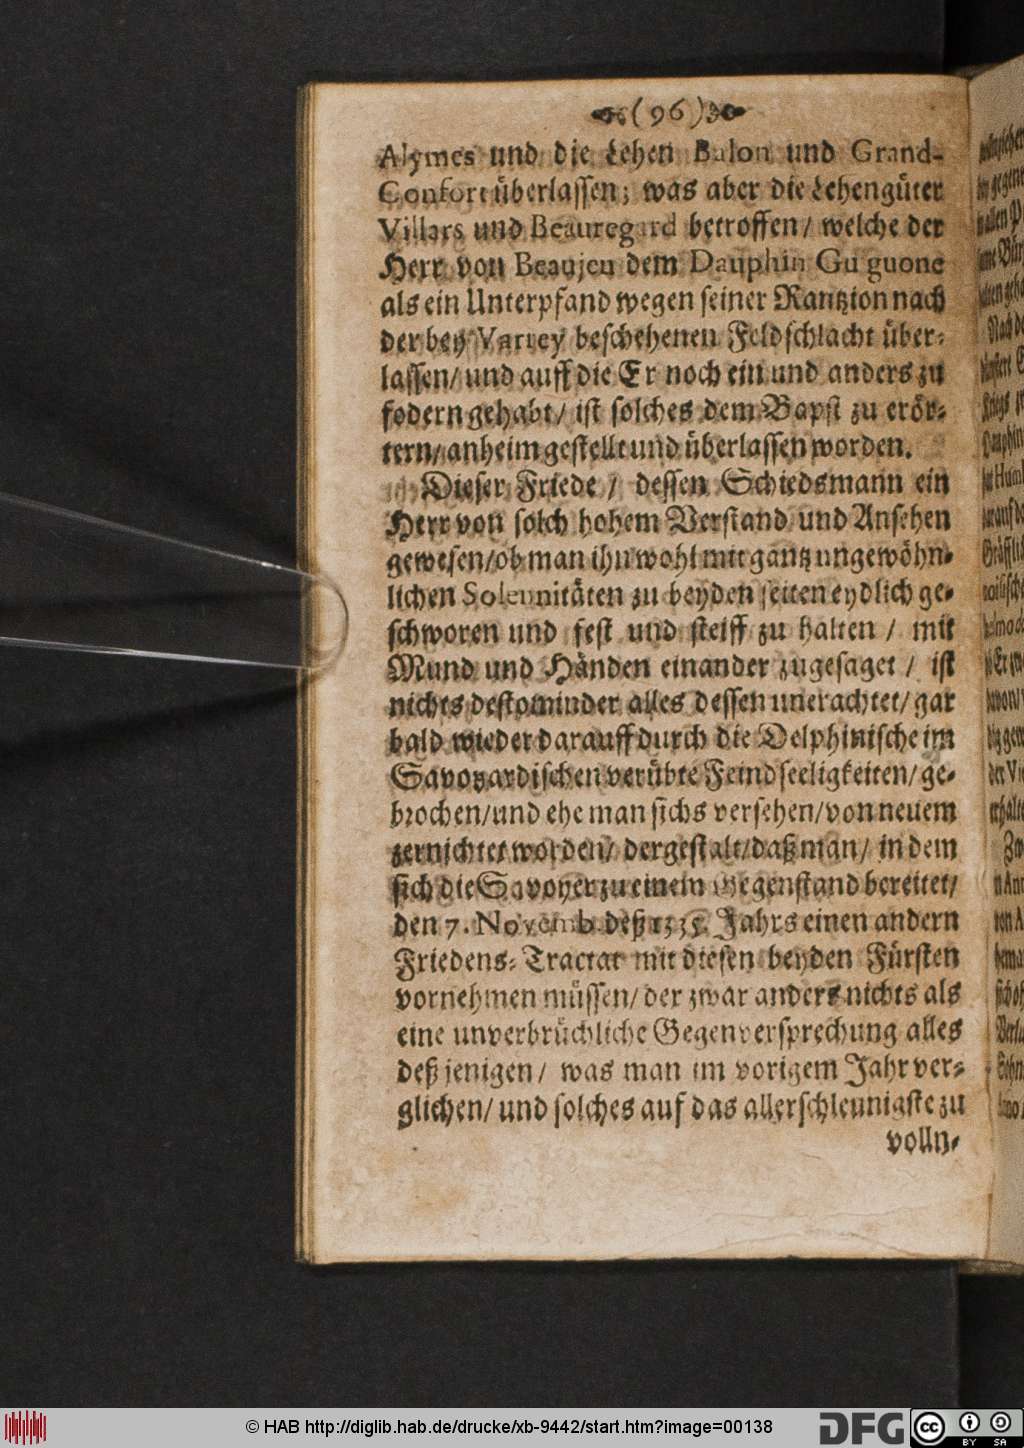 (96)
Alymes und die Lehen Balon und Grand-
Confort überlassen; was aber die Lehengüter
Villars und Beauregard betroffen/ welche der
Herr von Beaujeu dem Dauphin Guiguone
als ein Unterpfand wegen seiner Rantzion nach
der bey Varrey beschehenen Feldschlacht über-
lassen/ und auff die Er noch ein und anders zu
fodern gehabt/ ist solches dem Bapst zu erör-
tern/ anheim gestellt und überlassen worden.
Dieser Friede/ dessen Schiedsmann ein
Herr von solch hohem Verstand und Ansehen
gewesen/ ob man ihn wohl mit gantz ungewöhn-
lichen Solennitäten zu beyden seiten eydlich ge-
schworen und fest und steiff zu halten/ mit
Mund und Händen einander zugesaget/ ist
nichts destominder alles dessen unerachtet/ gar
bald wieder darauff durch die Delphinische im
Savoyardischen verübte Feindseeligkeiten/ ge-
brochen/ und ehe man sichs versehen/ von neuem
zernichtet worden/ dergestalt/ daß man/ in dem
sich die Savoyer zu einem Gegenstand bereitet/
den 7. Novemb. deß 1335. Jahrs einen andern
Friedens-Tractat mit diesen beyden Fürsten
vornehmen müssen/ der zwar anders nichts als
eine unverbrüchliche Gegenversprechung alles
deß jenigen/ was man im vorigem Jahr ver-
glichen/ und solches auf das allerschleunigste zu
volln-
© HAB http://diglib.hab.de/drucke/xb-9442/start.htm?image=00138
DFG
cc BY SA